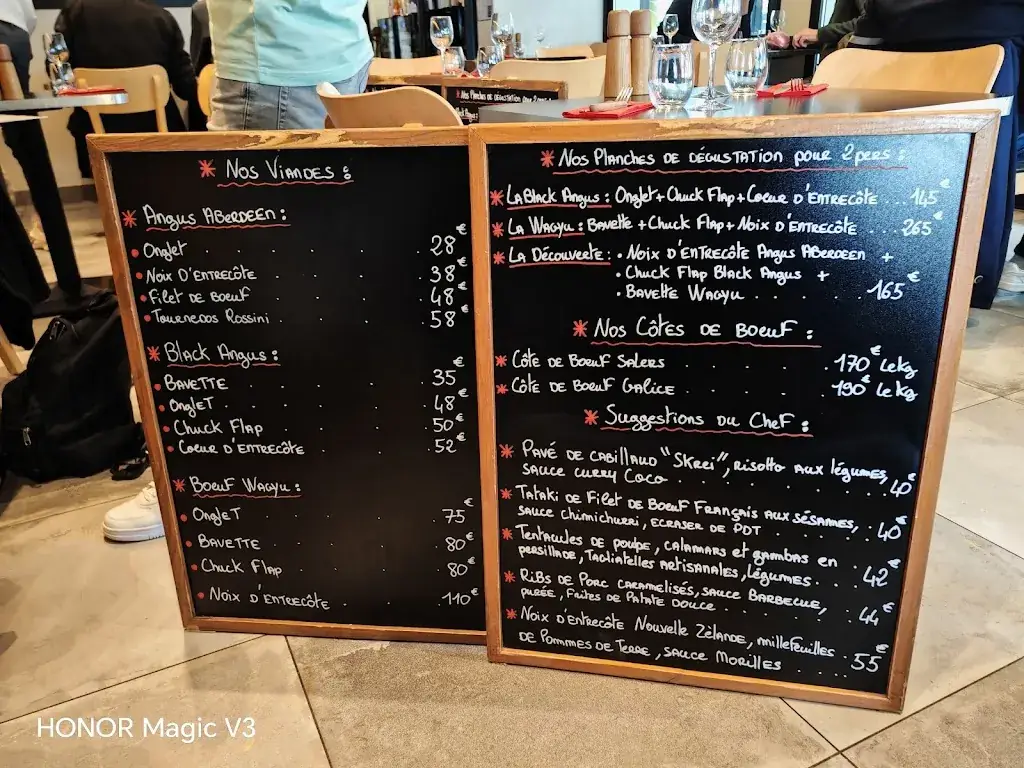 Nos Viandes :
Angus Aberdeen :
Onglet . . . . 28€
Noix d'entrecôte . . . 38€
Filet de boeuf . . . 48€
Tournedos Rossini . . . 58€
Black Angus :
Bavette . . . . 35€
Onglet . . . . 48€
Chuck Flap . . . 50€
Coeur d'entrecôte . . . 52€
Boeuf Wagyu :
Onglet . . . . 75€
Bavette . . . . 80€
Chuck Flap . . . 80€
Noix d'entrecôte . . . 110€
Nos Planches de dégustation pour 2 pers :
La Black Angus : Onglet + Chuck Flap + Coeur d'entrecôte ... 145€
La Wagyu : Bavette + Chuck Flap + Noix d'entrecôte .... 265€
La Découverte : • Noix d'entrecôte Angus Aberdeen +
• Chuck Flap Black Angus +
• Bavette Wagyu . . . . 165€
Nos Côtes de boeuf :
Côte de boeuf Salers . . . . 170€ le kg
Côte de boeuf Galice . . . . 190€ le kg
Suggestions du Chef :
Pavé de cabillaud "Skrei", risotto aux légumes,
sauce curry coco . . . . 40€
Tataki de filet de boeuf Français aux sésames,
sauce chimichurri, écraser de PDT . . . 40€
Tentacules de poulpe, calamars et gambas en
persillade, tagliatelles artisanales, légumes . . . 42€
Ribs de porc caramelisés, sauce barbecue,
purée, frites de patate douce . . . 44€
Noix d'entrecôte Nouvelle Zélande, millefeuilles
de pommes de terre, sauce morilles . . . 55€
Nos Planches de dégustation pour 2 pers :
HONOR Magic V3